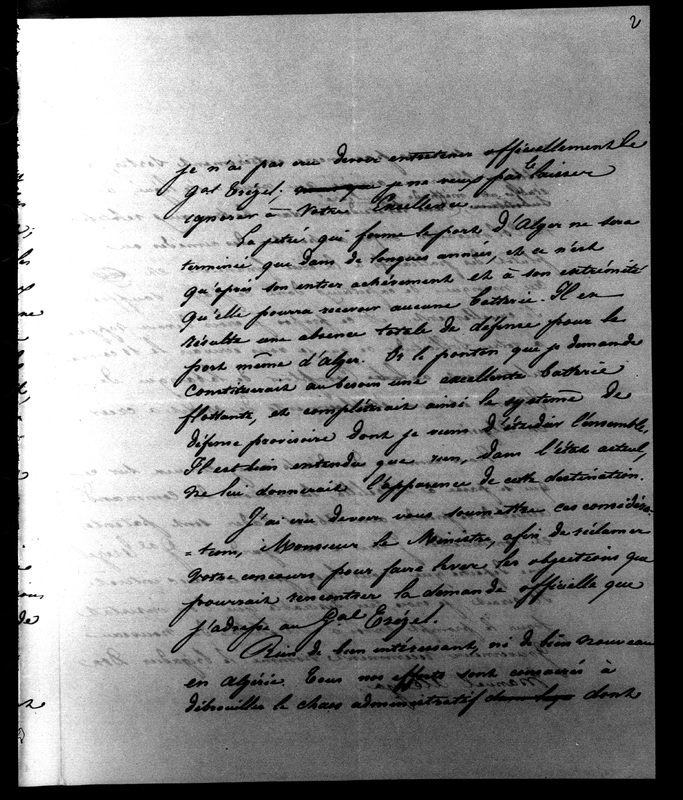 2
je n'ai pas cru devoir entretenir officiellement le
Gal Trézel, que je ne veux pas le laisser
ignorer à Votre Excellence
La jetée qui forme le port d'Alger ne sera
terminée que dans de longues années, et ce n'est
qu'après son entier achèvement et à son extrémité
qu'elle pourra recevoir aucune batterie. Il en
résulte une absence totale de défense pour le
port même d'Alger. Or le ponton que je demande
constituerait au besoin une excellente batterie
flottante, et complèterait ainsi le système de
défense provisoire dont je viens d'étudier l'ensemble.
Il est bien entendu que rien, dans l'état actuel,
ne lui donnerait l'apparence de cette destination.
J'ai cru devoir vous soumettre ces considéra-
=tions, Monsieur le Ministre, afin de réclamer
votre concours pour faire lever les objections que
pourrait rencontrer la demande officielle que
j'adresse au Gal Trézel.
Rien de bien intéressant, ni de bien nouveau
en Algérie. Tous nos efforts sont consacrés à
débrouiller le chaos administratif dont